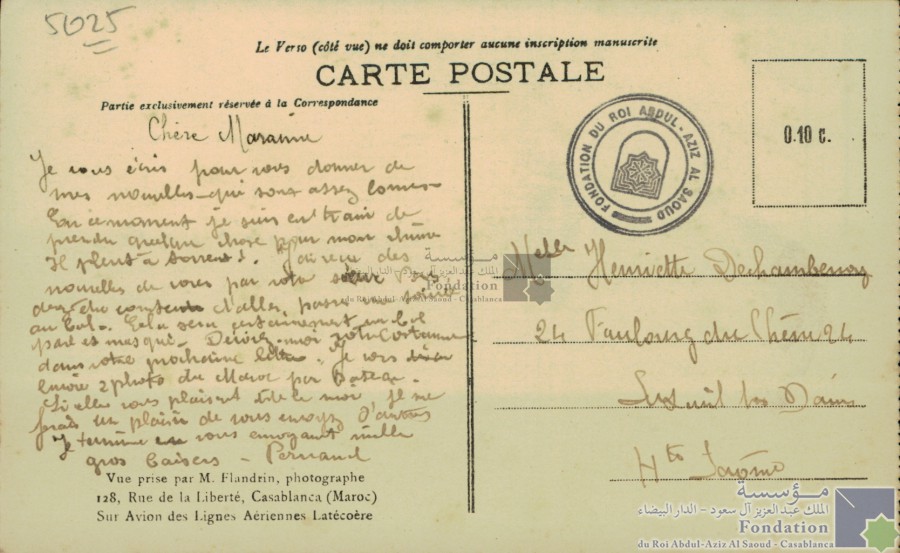 5025
Le Verso (côté vue) ne doit comporter aucune inscription manuscrite
CARTE POSTALE
Partie exclusivement réservée à la Correspondance
Chère
Je vous écris pour vous donner de
mes nouvelles qui sont assez bonnes
En ce moment je suis en train de
prendre quelque chose pour mon
Il pleut à torrent. J'ai reçu des
nouvelles de vous par votre
d'aller passer une soirée
au bal. Cela sera certainement un bal
paré et masqué. Décrivez-moi votre costume
dans votre prochaine lettre. Je vous
envoie 2 photo du Maroc par Bateau.
Si elles vous plaisent dite le moi je me
ferais un plaisir de vous envoyez d'autres
Je termine en vous envoyant mille
gros baisers - Fernand
Vue prise par M. Flandrin, photographe
128, Rue de la Liberté, Casablanca (Maroc)
Sur Avion des Lignes Aériennes Latécoère
FONDATION DU ROI ABDUL-AZIZ AL SAOUD
0.10 c.
Melle Henriette Dechambenoy
24 Faubourg du Chêne 24
Luxeuil les Bains
Hte Saône
مؤسسة
الملك عبد العزيز آل سعود - الدار البيضاء
Fondation
du Roi Abdul-Aziz Al Saoud - Casablanca
مؤسسة
الملك عبد العزيز آل سعود - الدار البيضاء
Fondation
du Roi Abdul-Aziz Al Saoud - Casablanca